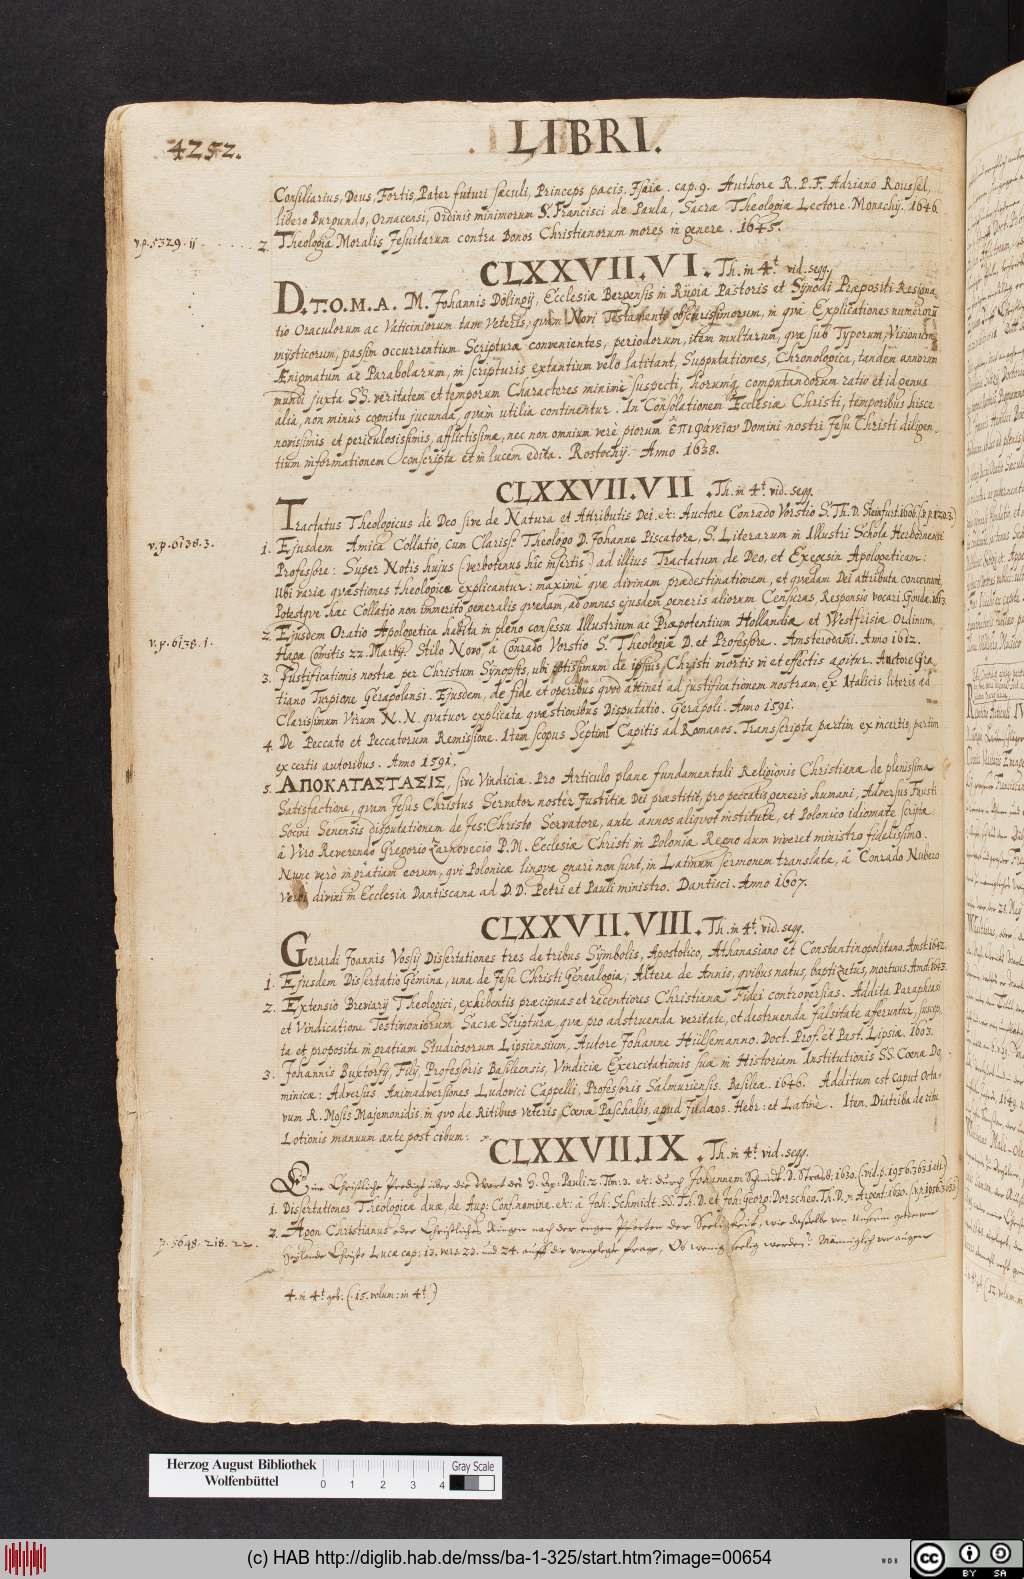 4252.
LIBRI.
Consiliarius, Deus, Fortis, Pater futuri sæculi, Princeps pacis. Isaiæ. cap. 9. Authore R. P. F. Adriano Roussel,
libero Burgundo, Ornacensi, Ordinis minimorum S. Francisci de Paula, Sacræ Theologiæ Lectore. Monachij. 1646.
v.p. 5329. 2. Theologia Moralis Jesuitarum contra Bonos Christianorum mores in genere. 1645.
CLXXVII. VI. Th. in 4t. vid. segg.
D. T. O. M. A. M. Johannis Dölingij, Ecclesiæ Bergensis in Rugia Pastoris et Synodi Præpositi Resigna
tio Oraculorum ac Vaticiniorum tam Veteris, quam Novi Testamenti obscurissimorum, in qua Explicationes numerorū
mysticorum, passim occurrentium Scripturæ convenientes, periodorum, item multarum, quæ sub Typorum, Visionum,
Ænigmatum ac Parabolarum, in scripturis extantium velo latitant, Supputationes, Chronologica, tandem annorum
mundi juxta SS. veritatem et temporum Characteres minimè suspecti, horumq computandorum ratio et id genus
alia, non minus cognitu jucunda, quam utilia continentur. In Consolationem Ecclesiæ Christi, temporibus hisce
novissimis et periculosissimis, afflictissimæ, nec non omnium verè piorum ἐπιφάνειαν Domini nostri Jesu Christi diligen-
tium informationem conscripta et in lucem edita. Rostochij. Anno 1638.
CLXXVII. VII. Th. in 4t. vid. segg.
Tractatus Theologicus de Deo sive de Natura et Attributis Dei. etc. Auctore Conrado Vorstio S. Th. D. Steinfurt. 1606.
v.p. 6138. 3. 1. Ejusdem Amica Collatio, cum Clariss. Theologo D. Johanne Piscatore, S. Literarum in Illustri Schola Herbornensi
Professore: Super Notis hujus (verbotenus hic insertis) ad illius Tractatum de Deo, et Exegesin Apologeticam:
Ubi variæ quæstiones theologicæ explicantur: maximè quæ divinam prædestinationem, et quædam Dei attributa concernunt.
Potestque hæc Collatio non immerito generalis quædam, ad omnes ejusdem generis aliorum Censuras, Responsio vocari. Goudæ. 1613.
v.p. 6138. 1. 2. Ejusdem Oratio Apologetica habita in pleno consessu Illustrium ac Præpotentium Hollandiæ et Westfrisiæ Ordinum,
Hagæ Comitis 22. Martij. Stilo Novo, à Conrado Vorstio S. Theologiæ D. et Professore. Amsterodami. Anno 1612.
3. Justificationis nostræ per Christum Synopsis, ubi potissimum de ipsius Christi mortis vi et effectis agitur. Auctore Gra-
tiano Turpione Gerapolensi. Ejusdem, de fide et operibus quod attinet ad justificationem nostram, ex Italicis literis ad
Clarissimum Virum N. N. quatuor explicata quæstionibus Disputatio. Gerapoli. Anno 1591.
4. De Peccato et Peccatorum Remissione. Item scopus Septimi Capitis ad Romanos. Transcripta partim ex incertis, partim
ex certis autoribus. Anno 1591.
5. ΑΠΟΚΑΤΑΣΤΑΣΙΣ, sive Vindiciæ. Pro Articulo plane fundamentali Religionis Christianæ de plenissima
Satisfactione, quam Jesus Christus Servator noster Justitiæ Dei præstitit, pro peccatis generis humani, Adversus Fausti
Socini Senensis disputationem de Jes: Christo Servatore, ante annos aliquot institutæ, et Polonico idiomate scriptæ
â Viro Reverendo Gregorio Zarnovecio P. M. Ecclesiæ Christi in Poloniæ Regno dum viveret ministro fidelissimo.
Nunc verò in gratiam eorum, qui Polonicæ linguæ gnari non sunt, in Latinum sermonem translatæ, â Conrado Nubero
Verbi divini in Ecclesia Dantiscana ad D. D. Petri et Pauli ministro. Dantisci. Anno 1607.
CLXXVII. VIII. Th. in 4t. vid. segg.
Gerardi Joannis Vossij Dissertationes tres de tribus Symbolis, Apostolico, Athanasiano et Constantinopolitano. Amst. 1642.
1. Ejusdem Dissertatio Gemina, una de Jesu Christi Genealogia, Altera de Annis, quibus natus, baptizatus, mortuus. Amst. 1643.
2. Extensio Breviarij Theologici, exhibentis præcipuas et recentiores Christianæ Fidei controversias. Addita Paraphrasi
et Vindicatione Testimoniorum Sacræ Scripturæ, quæ pro adstruenda veritate, et destruenda falsitate afferuntur, suscep-
ta et proposita in gratiam Studiosorum Lipsiensium, Autore Johanne Hülsemanno. Doct. Prof. et Past. Lipsiæ.
3. Johannis Buxtorfij, Filij, Professoris Basileensis, Vindiciæ Exercitationis suæ in Historiam Institutionis SS. Cœnæ Do
minicæ: Adversùs Animadversiones Ludovici Cappelli, Professoris Salmuriensis. Basileæ. 1646. Additum est Caput Octa-
vum R. Mosis Majemonidis, in quo de Ritibus Veteris Cœnæ Paschalis, apud Judæos. Hebr: et Latinè. Item. Diatriba de ritu
Lotionis manuum ante post cibum:
CLXXVII. IX. Th. in 4t. vid. segg.
Eine Christliche Predigt über die Wort des H. Ap: Pauli 2. Tim: 3. etc: durch Johannem Schmidt. D. Strasb: 1630.
1. Dissertationes Theologicæ duæ, de Aug: Conf. nomine. etc: â Joh: Schmidt. SS. Th. D. et Joh: Georg: Dorscheo. Th. D. Argent: 1630.
2. Agon Christianus oder Christliches Ringen nach der engen Pforten der Seeligkeit, wie dasselbe von Unserm
p. 5648. 218. 22. Heylande Christo Luca cap: 13. vers. 23. und 24. auff die vorgelegte frage, Ob wenig seelig werden?
4. in 4t geb. (. 15. volum: in 4t.)
Herzog August Bibliothek
Wolfenbüttel
Gray Scale
0 1 2 3 4
(c) HAB http://diglib.hab.de/mss/ba-1-325/start.htm?image=00654
WDB
cc BY SA